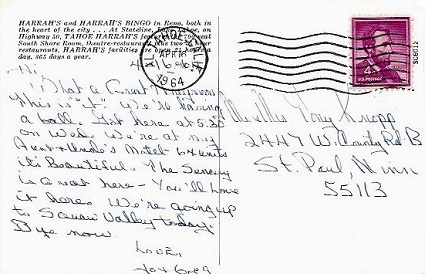 HARRAH'S and HARRAH'S BINGO in Reno, both in
the heart of the city . . . At Stateline,
Highway 50, TAHOE HARRAH'S
South Shore Room, theatre-restaurant
restaurants. HARRAH'S facilities are open 24 hours a
day, 365 days a year.
APR
1964
4¢
U.S. POSTAGE
Hi,
What a Great
This is "it". We're having
a ball. Got here at 5:30
on Wed. We're at my
Aunt & Uncle's Motel 6 units
it's Beautiful. The Scenery
is Great here - You'll Love
it here. We're going up
to Squaw Valley today.
Bye now.
Love,
Mr & Mrs Tony Knopp
2447 W. County Rd B
St. Paul, Minn
55113